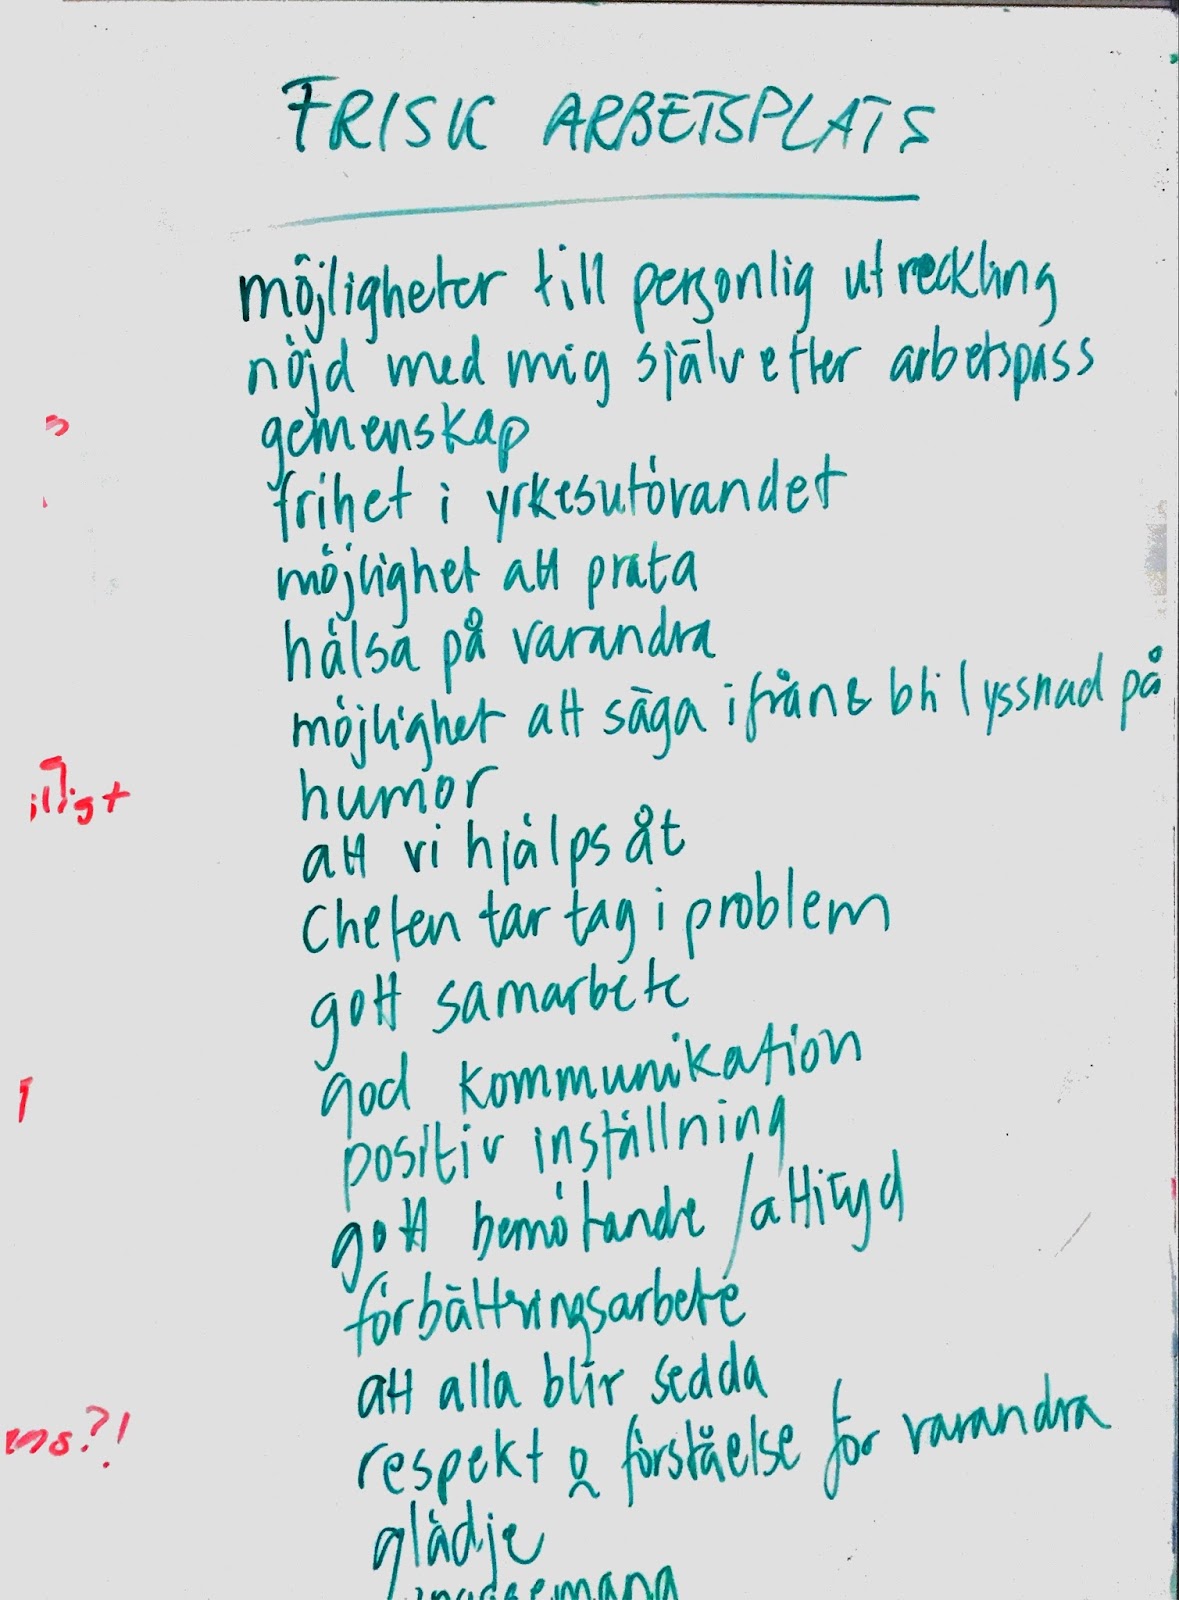 FRISK ARBETSPLATS
möjligheter till personlig utveckling
nöjd med mig själv efter arbetspass
gemenskap
frihet i yrkesutövandet
möjlighet att prata
hälsa på varandra
möjlighet att säga ifrån & bli lyssnad på
humor
att vi hjälps åt
chefen tar tag i problem
gott samarbete
god kommunikation
positiv inställning
gott bemötande / attityd
förbättringsarbete
att alla blir sedda
respekt o förståelse för varandra
glädje